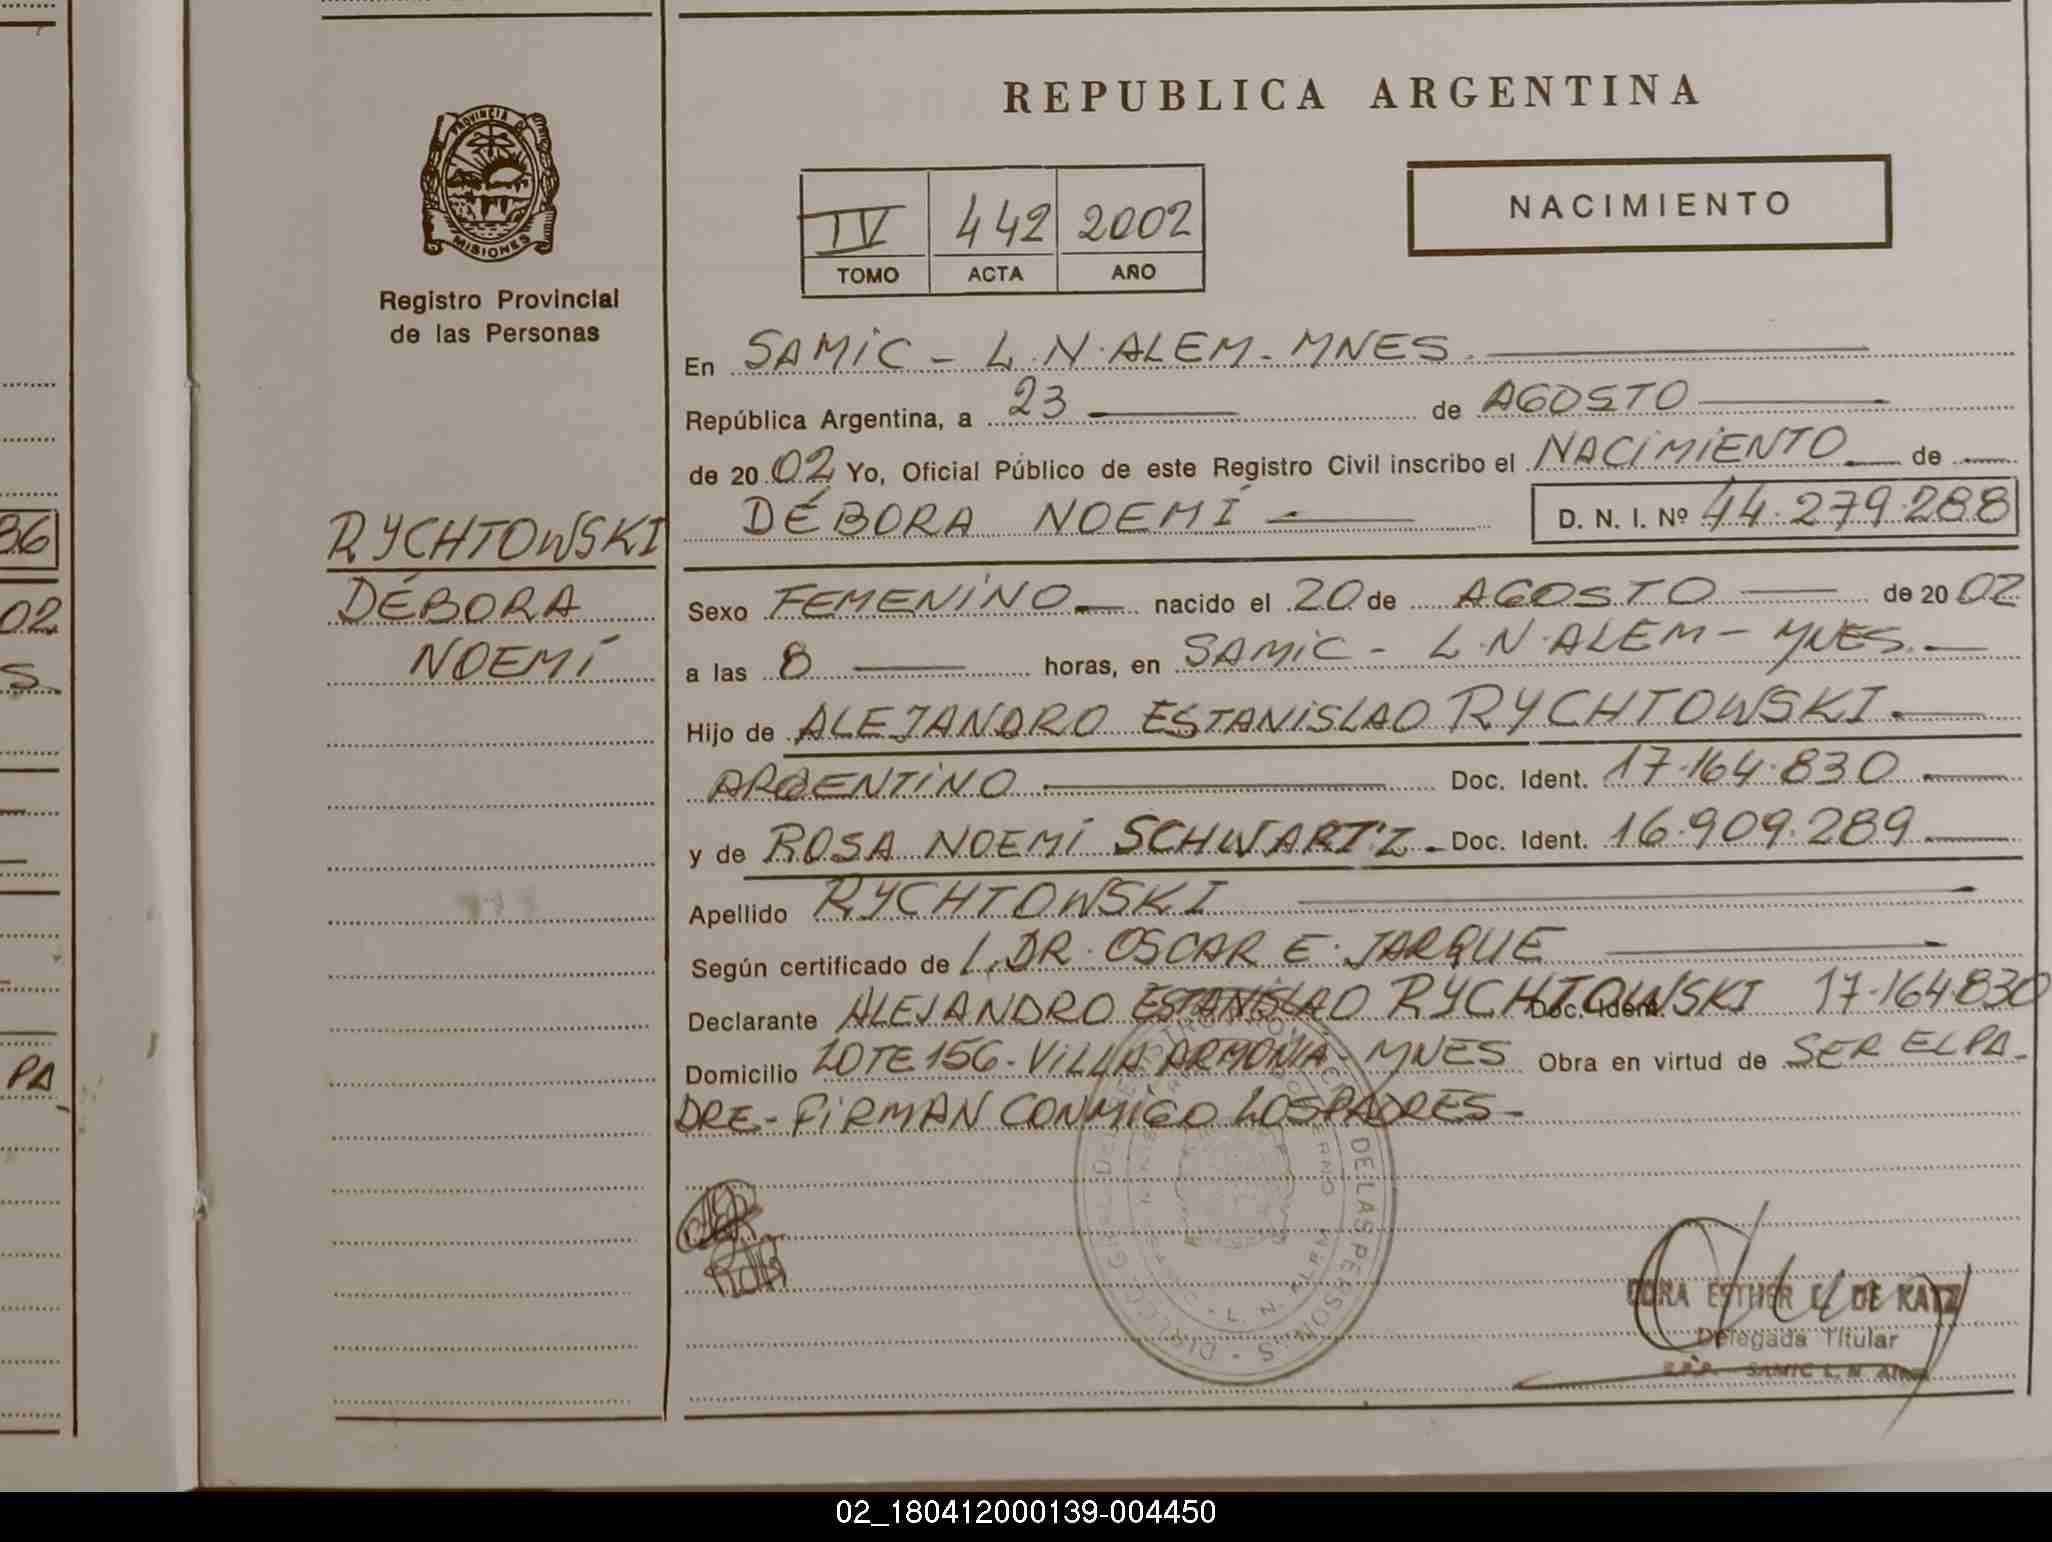 REPUBLICA ARGENTINA
PROVINCIA DE
MISIONES
Registro Provincial
de las Personas
IV 442 2002
TOMO ACTA AÑO
NACIMIENTO
En SAMIC - L.N. ALEM - MNES.
República Argentina, a 23 de AGOSTO
de 2002 Yo, Oficial Público de este Registro Civil inscribo el NACIMIENTO de
DÉBORA NOEMÍ D. N. I. Nº 44.279.288
RYCHTOWSKI
DÉBORA
NOEMÍ
Sexo FEMENINO nacido el 20 de AGOSTO de 2002
a las 8 horas, en SAMIC - L.N. ALEM - MNES.
Hijo de ALEJANDRO ESTANISLAO RYCHTOWSKI.
ARGENTINO Doc. Ident. 17.164.830
y de ROSA NOEMÍ SCHWARTZ - Doc. Ident. 16.909.289
Apellido RYCHTOWSKI
Según certificado de DR. OSCAR E. JARQUE
Declarante ALEJANDRO ESTANISLAO RYCHTOWSKI Doc. Ident. 17.164.830
Domicilio LOTE 156 - VILLA ARMONIA - MNES Obra en virtud de SER EL PA-
DRE - FIRMAN CONMIGO LOS PADRES -
DE LAS PERSONAS
L. N. ALEM
ESTHER DE KATZ
Delegada Titular
SAMIC L. N. Alem
36
02
S.
PA
02_180412000139-004450